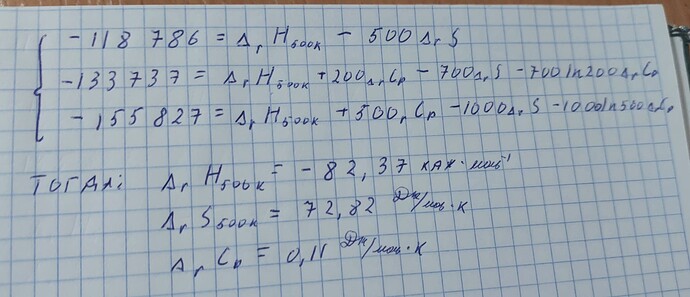 -118 786 = Δr H500K - 500 Δr S
-133 737 = Δr H500K + 200 Δr Cp - 700 Δr S - 700 ln 200 Δr Cp
-155 827 = Δr H500K + 500 r Cp - 1000 Δr S - 1000 ln 500 Δr Cp
ТОГДА: Δr H500K = -82,37 кДж·моль⁻¹
Δr S500K = 72,82 Дж/моль·К
Δr Cp = 0,11 Дж/моль·К